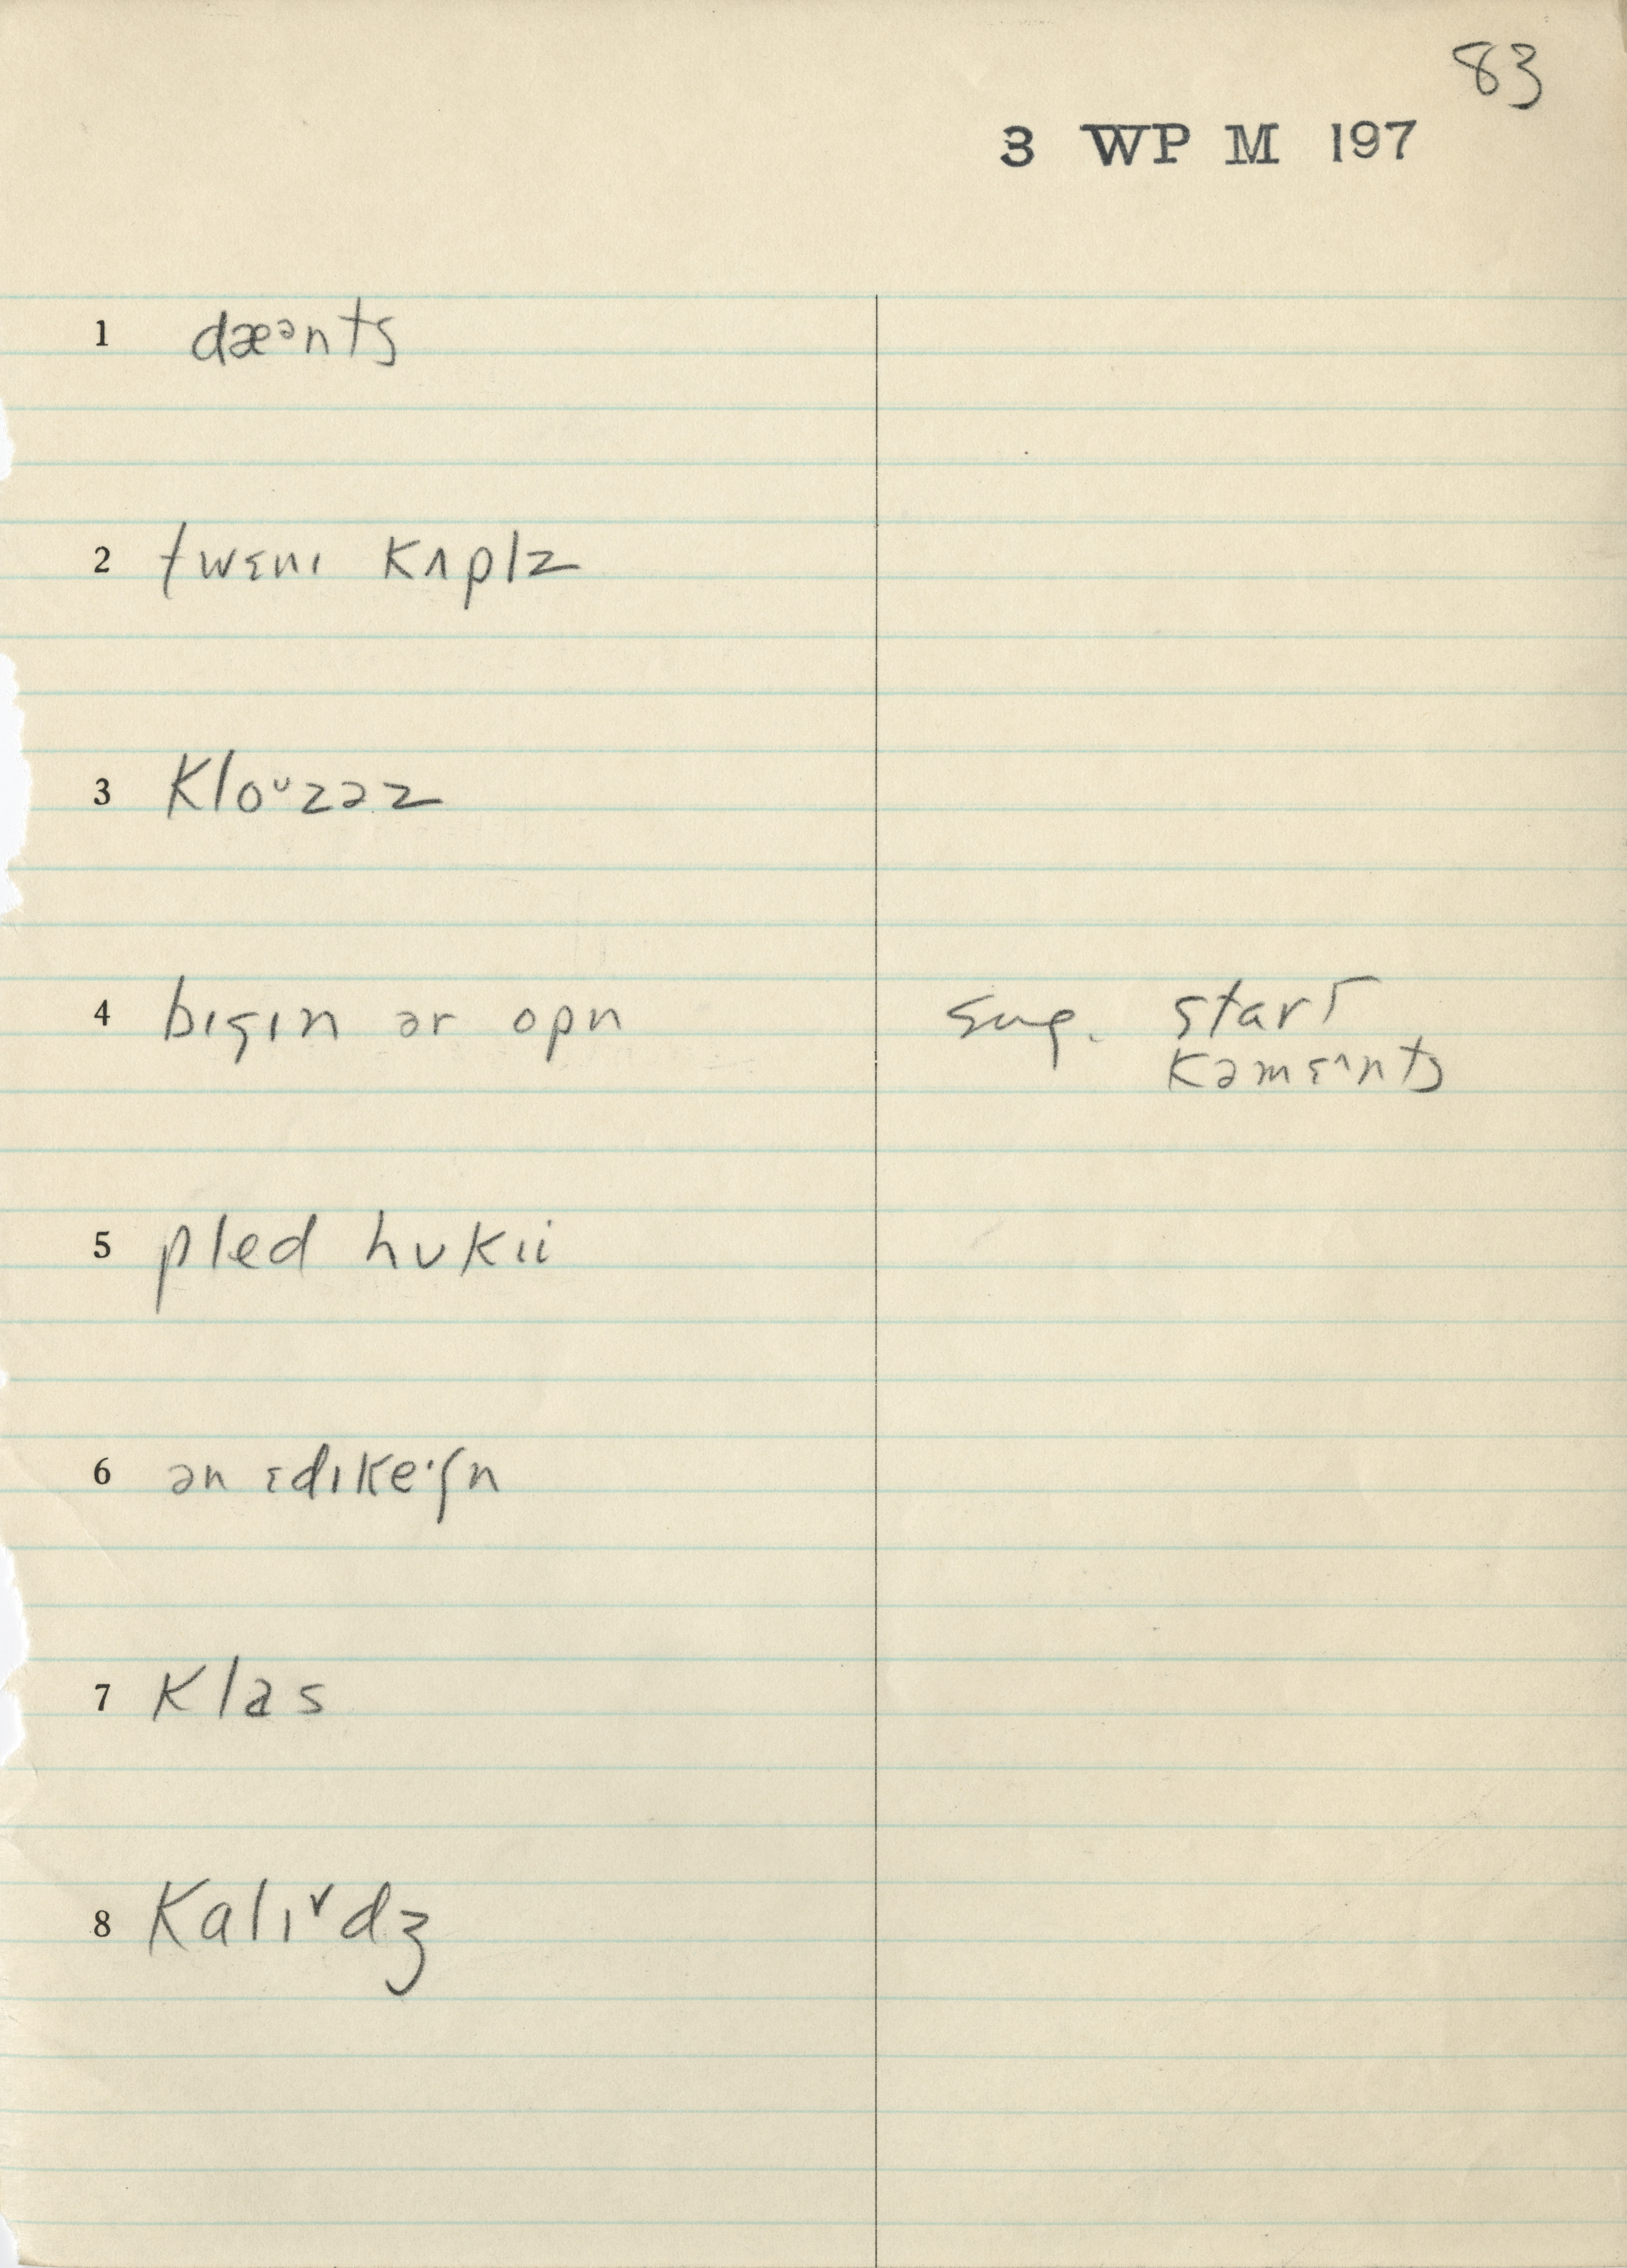 83
3 WP M 197
1 dæᵊnts
2 twɛnɪ kʌplz
3 kloᶷzəz
4 bɪgɪn ər opn sug. start
kəmɛ^nts
5 pled hʊkɪi
6 ən ɛdɪkeᶦʃn
7 klas
8 kalɪᵛdʒ